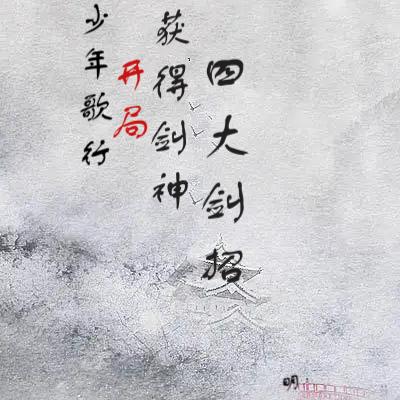 少年歌行
开局
获得剑神
四大剑招
明